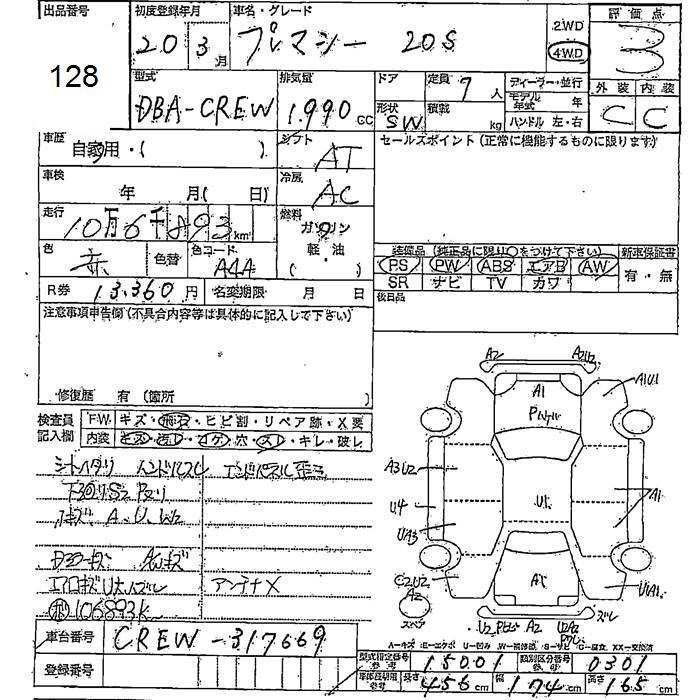 出品番号 初度登録年月 車名・グレード 2WD 評価点
128 20 3月 プレマシー 20S 4WD 3
型式 排気量 ドア 定員 7人 ディーラー・並行 外装 内装
DBA-CREW 1.990cc 形状 SW 積載 kg モデル年式 年 C C
ハンドル 左・右
車歴 自家用・( ) シフト AT セールスポイント(正常に機能するものに限ります)
車検 年 月( 日) 冷房 AC
走行 10万6千893km 燃料 ガソリン
軽・油
( )
色 赤 色替 色コード A4A 装備品(純正品に限り○をつけて下さい) 新車保証書
PS PW ABS エアB AW 有・無
SR ナビ TV カワ
R券 13,360円 名変期限 月 日 後日品
注意事項申告欄(不具合内容等は具体的に記入して下さい)
修復歴 有(箇所 )
検査員記入欄 FW キズ・飛石・ヒビ割・リペア跡・X要
内装 キズ・汚レ・コゲ・穴・スレ・キレ・破レ
シートヘタリ ハンドルスレ エンドパネル歪ミ
下回リS2 Pスリ
キズ A.U.W2
ドラミラーキズ AWキズ
エアロキズU大ハズレ アンテナX
106893K
A2 A2U2
A1 A1U1
PハゲW
A3U2
U4 U1 A1
U1A3
C2U2 A1 U1A1
A2
スペア U2 Pヒビ A2 U2A2 ズレ
A-キズ E-エクボ U-凹み W-補修跡 S-サビ C-腐食 XX-交換済
車台番号 CREW-317669
型式指定番号 15001 類別区分番号 0301
登録番号
車体長研用参考 長さ 456cm 幅 174cm 高さ 165cm